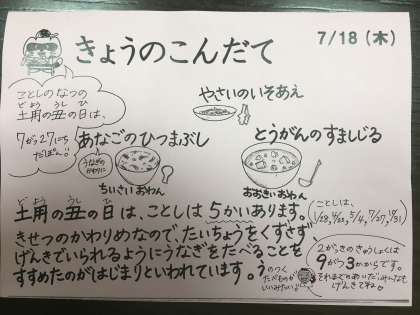 きょうのこんだて
7/18（木）
ことしのなつの
土用の丑の日は、
どよう うし ひ
7がつ27にち
だぽん!!
やさいのいそあえ
あなごのひつまぶし
うなぎの
かわりに
ちいさい おわん
とうがんのすましじる
おおきい おわん
どよう うし ひ
土用の丑の日は、ことしは5かいあります。
きせつのかわりめなので、たいちょうをくずさず
げんきでいられるようにうなぎをたべることを
すすめたのがはじまりといわれています。
うのつく
たべものが
いいみたい!
ことしは、
2がっきのきゅうしょくは
9がつ3かからです。
それまでのあいだ、みんなも
げんきでね。